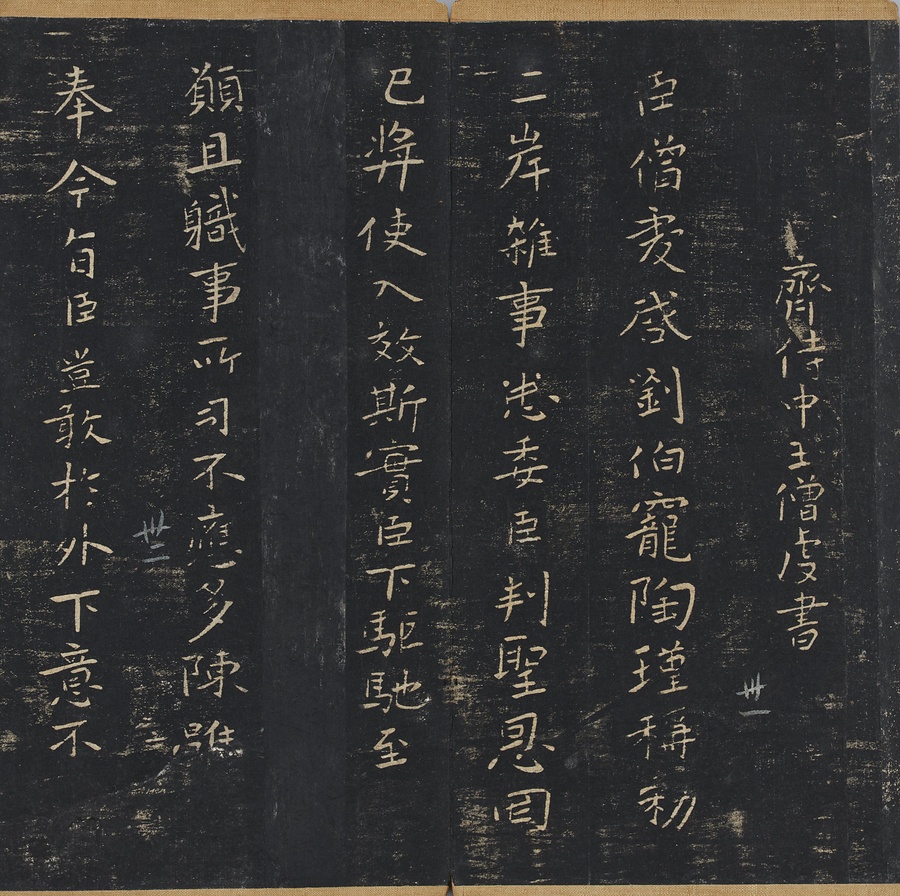 齊侍中王僧虔書
臣僧虔啓劉伯寵陶瑾稱勑
卅一
二岸雜事悉委臣判聖恩罔
已奬使入效斯實臣下駈馳至
願且職事所司不應多陳雖
卅二
奉今旨臣豈敢於外下意不